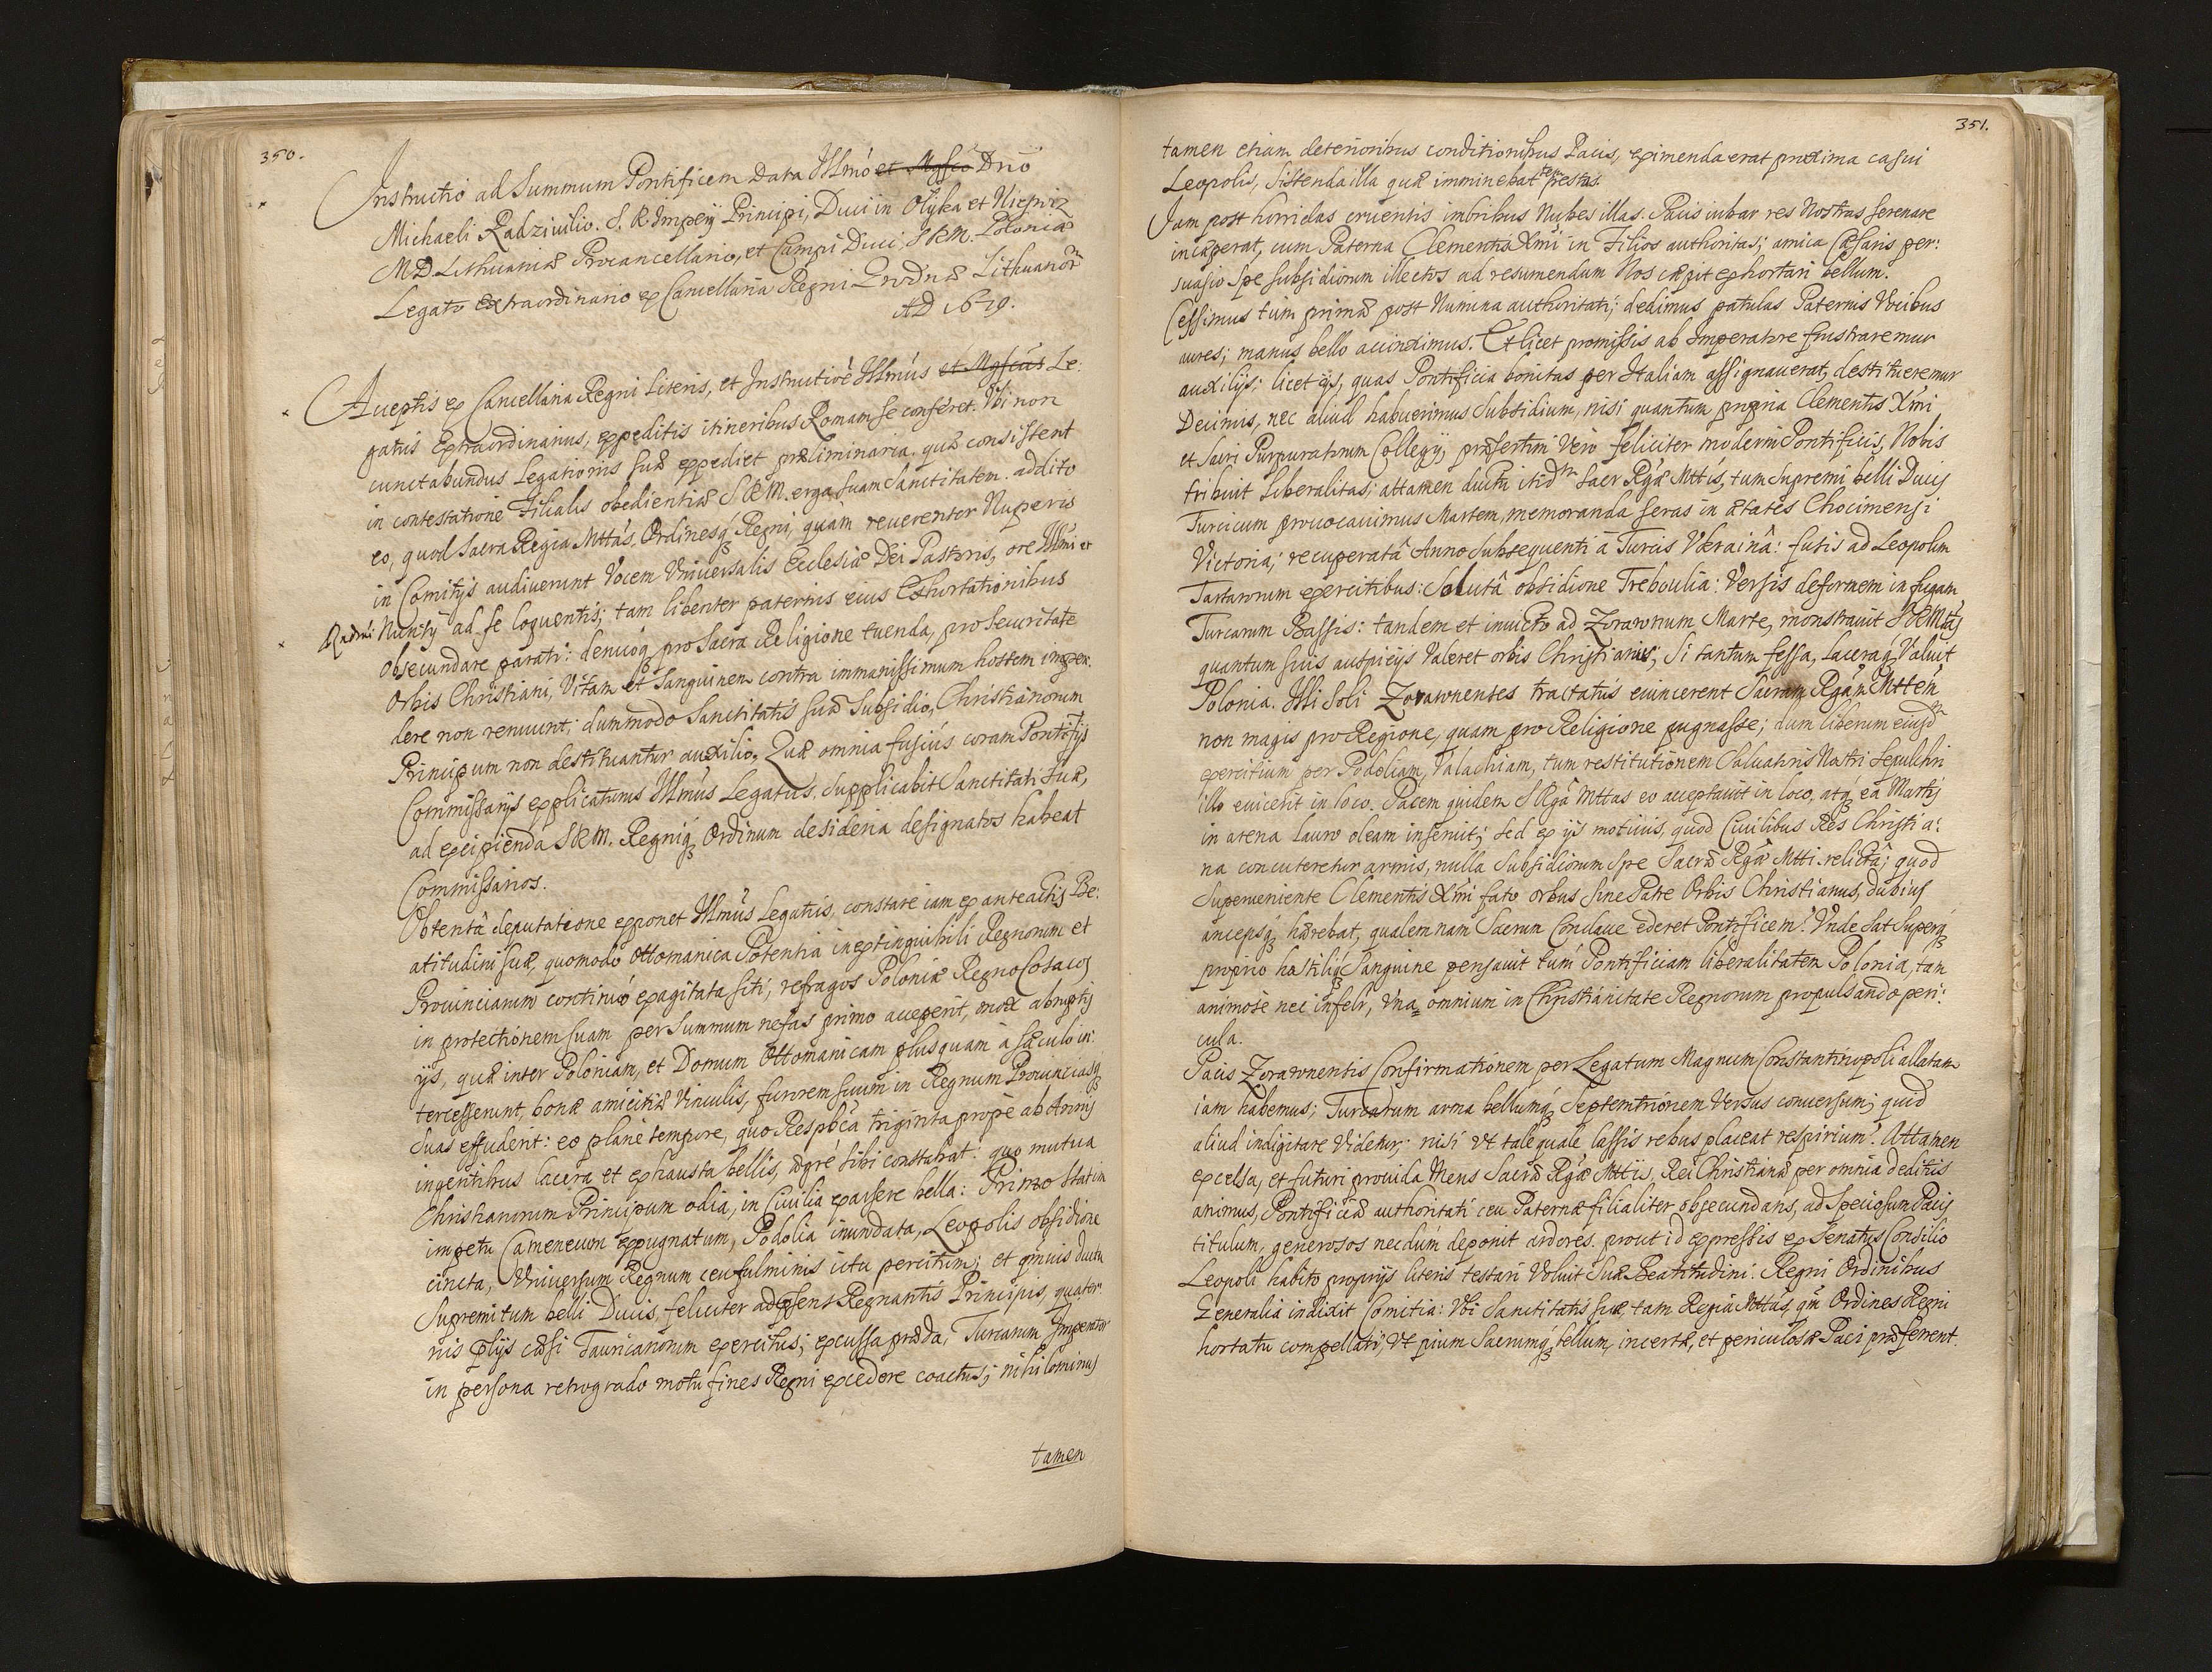 350.
Instructio ad Summum Pontificem data Illmo et Mgfco Dno
Michaeli Radziuilio. S. R. Impery Principi, Duci in Olyka et Nieswiz
M D Lithuaniæ Procancellario, et Campi Duci, S R M. Poloniæ
Legato extraordinario ex Cancellaria Regni Grodnæ Lithuanor
AD 1679.
Aceptis ex Cancellaria Regni literis, et Instructioē Illmus et Mgfcus Le:
gatus Extraordinarius, expeditis itineribus Romam se conferet. Vbi non
cunctabundus Legationis suæ expediet præliminaria. quæ consistent
in contestatione Filialis obedientiæ S R M. erga suam Sanctitatem. addito
eo, quod Sacra Regia Mttas, Ordinesq Regni, quam reuerenter Nuperis
in Comitijs audiuerunt Vocem Vniuersalis Ecclesiæ Dei Pastoris, ore Illmi et
Rndmi Nuntij ad se loquentis; tam libenter paternis eius Exhortationibus
obsecundare parati: denuoq pro Sacra Religione tuenda, pro Securitate
Orbis Christiani, Vitam et Sanguinem contra immanissimum hostem impen:
dere non renuunt; dummodo Sanctitatis suæ Subsidio, Christianorum
Principum non destituantur auxilio. Quæ omnia fusius coram Pontificijs
Commissarijs explicaturus Illmus Legatus, Supplicabit Sanctitati Suæ,
ad excipienda S R M. Regniq Ordinum desideria designatos habeat
Commissarios.
Obtentâ deputatione exponet Illmus Legatus, constare iam ex anteactis Be:
atitudini suæ, quomodo Ottomanica Potentia inextinguibili Regnorum et
Prouinciarum continuo exagitata siti, refragos Poloniæ Regno Cosacos
in protectionem suam per summum nefas primo acceperit, mox abruptis
ijs, quæ inter Poloniam, et Domum Ottomanicam plusquam à sæculo in:
tercesserunt, bonæ amicitiæ Vinculis, furorem suum in Regnum Prouinciasq
suas effuderit: eo plane tempore, quo Respbca triginta prope ab Annis
ingentibus lacera et exhausta bellis, ægre sibi constabat: quo mutua
Christianorum Principum odia, in Ciuilia exarsere bella: Primo statim
impetu Camenecum expugnatum, Podolia inundata, Leopolis obsidione
cincta, Vniuersum Regnum ceu fulminis ictu percitum; et quis ductu
Supremi tum belli Ducis, feliciter ad psens Regnantis Principis, quater:
nis plijs cæsi Tauricanorum exercitus; excussa præda, Turcarum Imperator
in persona retrogrado motu fines Regni excedere coactus; nihilominus
tamen
351.
tamen etiam deterioribus conditionibus Pacis, eximenda erat proxima casui
Leopolis, sistenda illa quæ imminebat tempestas.
Iam post horridas cruentis imbribus Nubes illas. Pacis iubar res Nostras serenare
incæperat, cum Paterna Clementis Xmi in Filios authoritas; amica Cæsaris per:
suasio spe subsidiorum illectos ad resumendum Nos cæpit exhortari bellum.
Cessimus tum primæ post Numina authoritati; dedimus patulas Paternis Vocibus
aures; manus bello accinximus. Et licet promissis ab Imperatore frustraremur
auxilijs; licet ijs, quas Pontificia bonitas per Italiam assignauerat, destitueremur
Decimis, nec aliud habuerimus Subsidium, nisi quantum propria Clementis Xmi,
et Sacri Purpuratorum Collegij, præsertim Vero feliciter moderni Pontificis, Nobis
tribuit Liberalitas; attamen ductu itidm Sacr Rgæ Mttis, tum Supremi belli Ducis
Turcicum prouocauimus Martem, memoranda seras in ætates Chocimensi
Victoria; recuperatâ Anno Subsequenti ā Turcis Vcrainâ: fusis ad Leopolim
Tartarorum exercitibus: Solutâ obsidione Treboulia: Versis deformem in fugam
Turcarum Bassis: tandem et inuicto ad Zorawnum Marte, monstrauit S R Mtas
quantum suis auspicijs Valeret orbis Christianus, Si tantum fessa, Laceraq Valuit
Polonia. Illi soli Zorawnenses tractatus euincerent Sacram Rgam Mttem
non magis pro Regione, quam pro Religione pugnasse; dum liberum eiusdm
exercitium per Podoliam, Valachiam, tum restitutionem Saluatoris Nostri Sepulchri
illo euicerit in loco. Pacem quidem S Rga Mttas eo acceptauit in loco, atq ea Martis
in arena lauro oleam inseruit; sed ex ijs motiuis, quod Ciuilibus Res Christia:
na concuteretur armis, nulla Subsidiorum Spe Sacræ Rgæ Mtti relictâ; quod
Superueniente Clementis Xmi fato orbus sine Patre Orbis Christianus, dubius
ancepsq hærebat, qualem nam Sacrum Conclaue ederet Pontificem. Vnde Sat Superq
proprio hostiliq Sanguine pensauit tum Pontificiam liberalitatem Polonia, tam
animose nec infelr, Vna omnium in Christianitate Regnorum propulsando peri:
cula.
Pacis Zorawnensis Confirmationem per Legatum Magnum Constantinopoli allatam
iam habemus; Turcarum arma bellumq Septemtrionem Versus conuersum; quid
aliud indigitare Videtur; nisi Vt talequale lassis rebus placeat respirium. Attamen
excelsa, et futuri prouida Mens Sacræ Rgæ Mttis, Rei Christianæ per omnia deditus
animus, Pontificiæ authoritati ceu Paternæ filialiter obsecundans, ad Speciosum Pacis
titulum, generosos necdum deponit ardores. prout id expressis ex Senatus Consilio
Leopoli habito proprijs literis testari Voluit Suæ Beatitudini. Regni Ordinibus
Generalia indixit Comitia: Vbi Sanctitatis suæ, tam Regia Mttas, qm Ordines Regni
hortatu compellati, Vt pium Sacrumq bellum, incertæ, et periculosæ Paci præferrent.